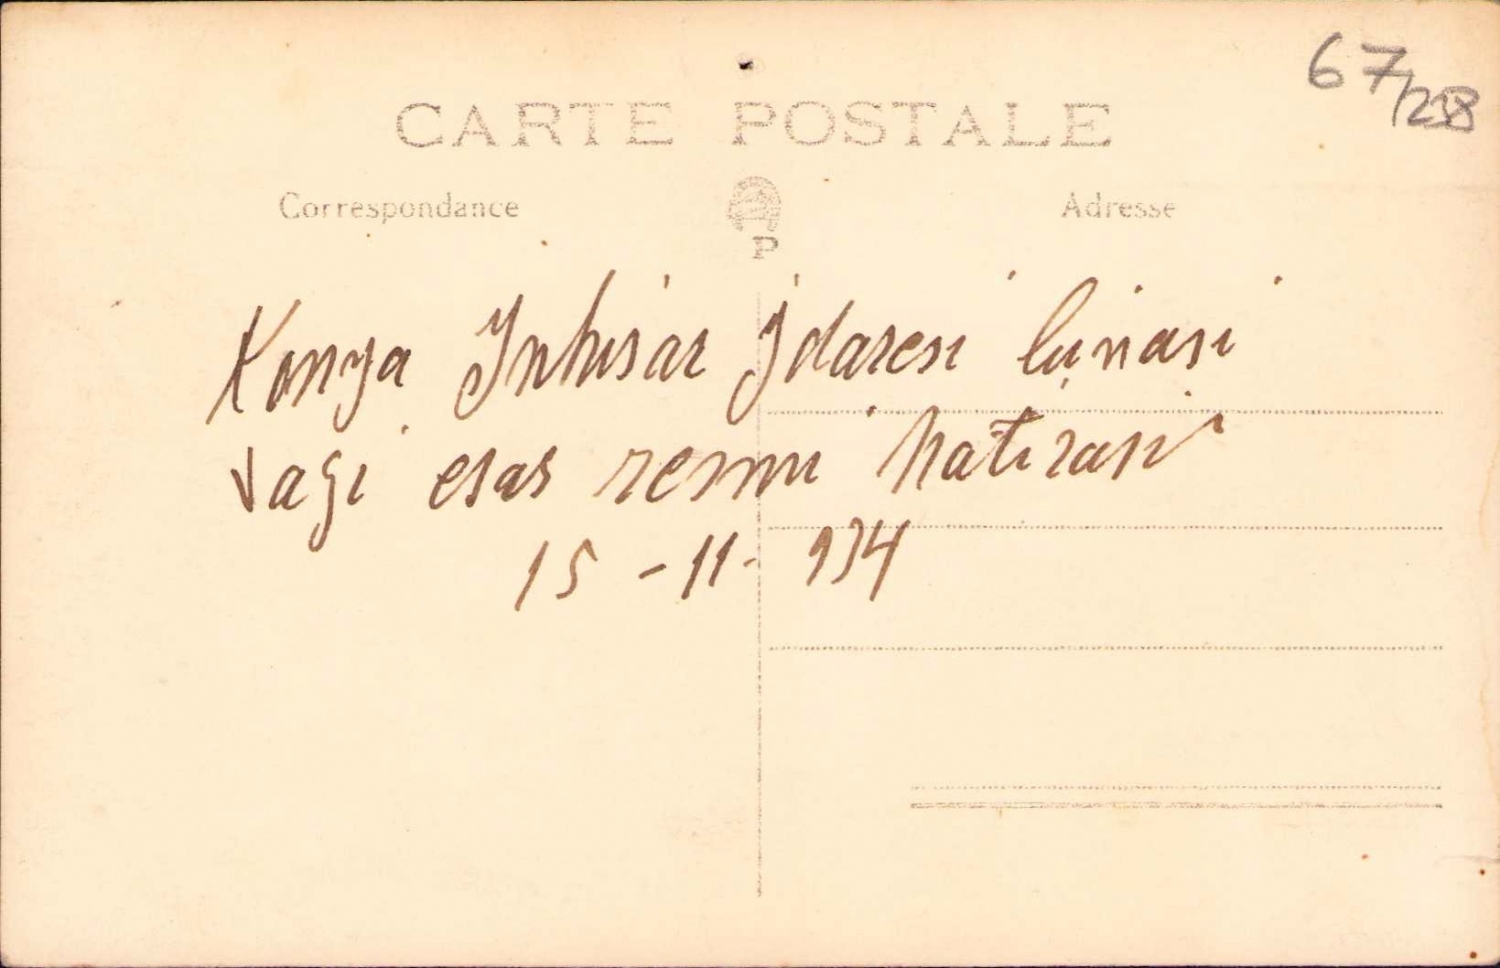 67/28
CARTE POSTALE
Correspondance
Adresse
P
Konya İnhisar İdaresi binasi
vazi esas resmi hatirasi
15-11-934